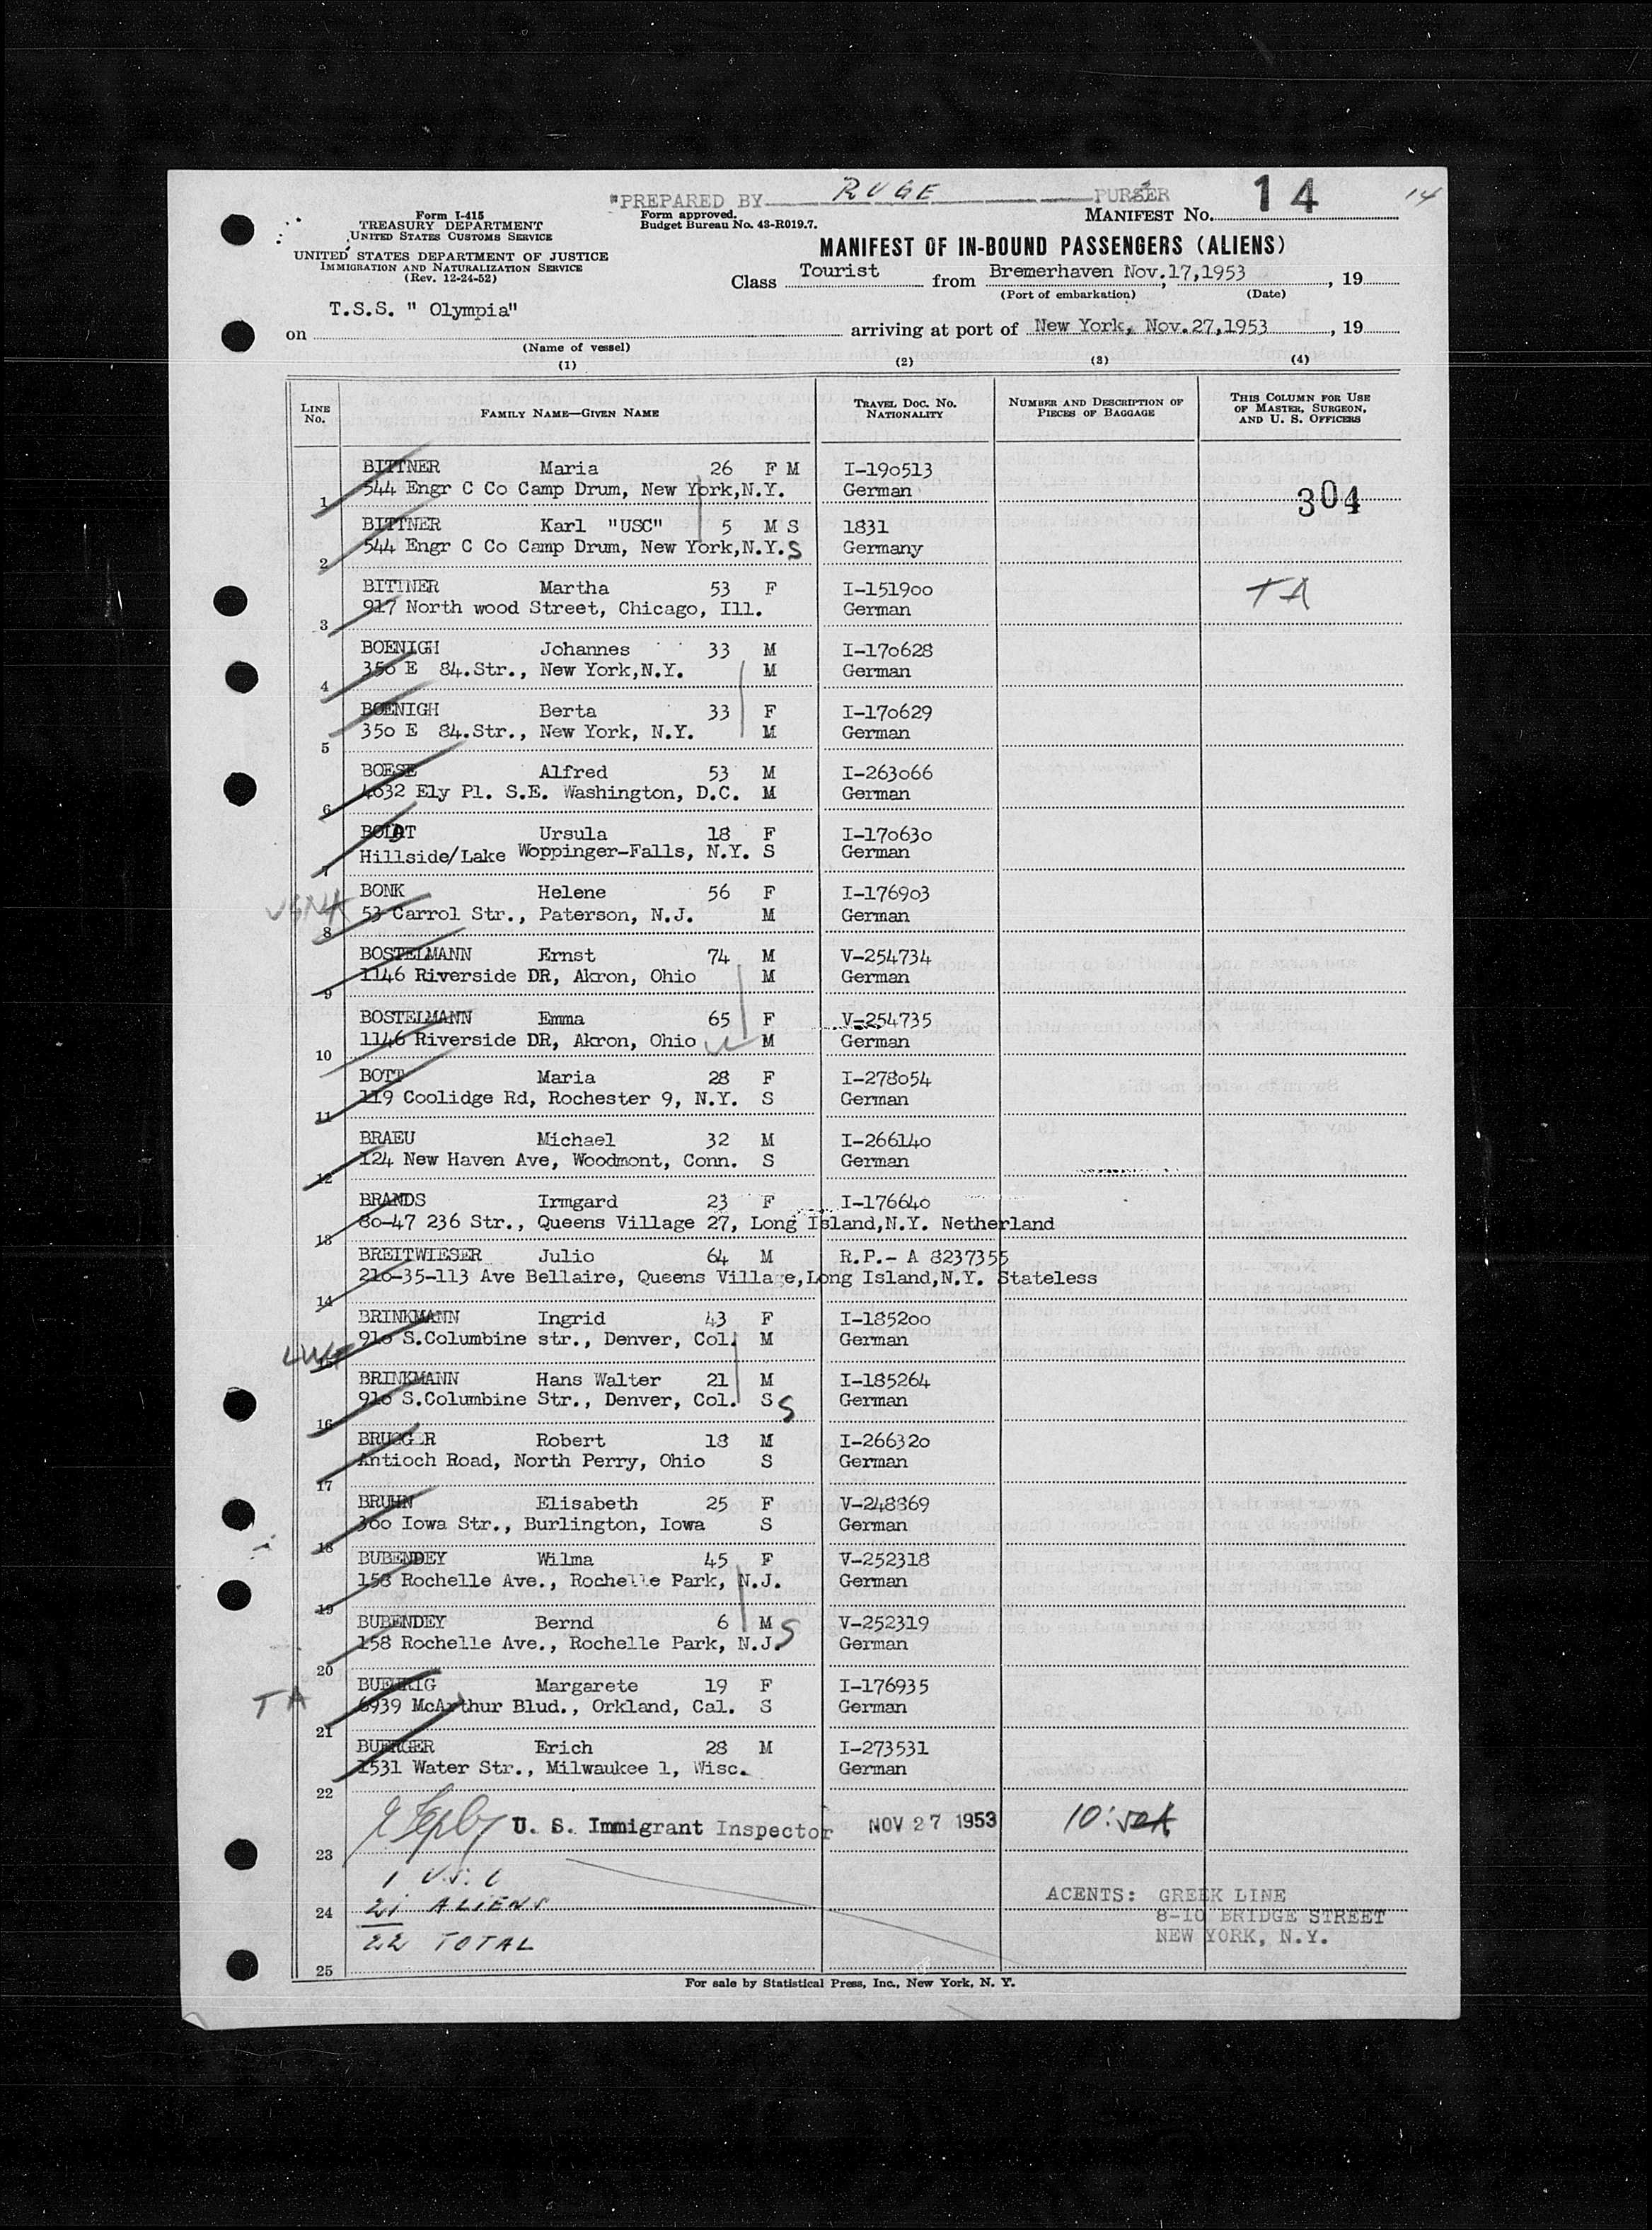 "PREPARED BY RUGE PURSER
14
14
Form I-415
TREASURY DEPARTMENT
UNITED STATES CUSTOMS SERVICE
UNITED STATES DEPARTMENT OF JUSTICE
IMMIGRATION AND NATURALIZATION SERVICE
(Rev. 12-24-52)
Form approved.
Budget Bureau No. 43-R019.7.
MANIFEST No.
MANIFEST OF IN-BOUND PASSENGERS (ALIENS)
Class Tourist from Bremerhaven Nov.17,1953, 19
(Port of embarkation) (Date)
on T.S.S. " Olympia" arriving at port of New York, Nov.27,1953, 19
(Name of vessel)
(1) (2) (3) (4)
LINE No. FAMILY NAME—GIVEN NAME TRAVEL DOC. NO. NATIONALITY NUMBER AND DESCRIPTION OF PIECES OF BAGGAGE THIS COLUMN FOR USE OF MASTER, SURGEON, AND U. S. OFFICERS
BITTNER Maria 26 F M I-190513
1 544 Engr C Co Camp Drum, New York,N.Y. German 304
BITTNER Karl "USC" 5 M S 1831
2 544 Engr C Co Camp Drum, New York,N.Y. S Germany
BITTNER Martha 53 F I-151900 TA
3 917 North wood Street, Chicago, Ill. German
BOENIGH Johannes 33 M I-170628
4 350 E 84.Str., New York,N.Y. M German
BOENIGH Berta 33 F I-170629
5 350 E 84.Str., New York, N.Y. M German
BOESE Alfred 53 M I-263066
6 4632 Ely Pl. S.E. Washington, D.C. M German
BOLDT Ursula 18 F I-170630
7 Hillside/Lake Woppinger-Falls, N.Y. S German
BONK Helene 56 F I-176903
8 53 Carrol Str., Paterson, N.J. M German
BOSTELMANN Ernst 74 M V-254734
9 1146 Riverside DR, Akron, Ohio M German
BOSTELMANN Emma 65 F V-254735
10 1146 Riverside DR, Akron, Ohio M German
BOTT Maria 28 F I-278054
11 119 Coolidge Rd, Rochester 9, N.Y. S German
BRAEU Michael 32 M I-266140
12 124 New Haven Ave, Woodmont, Conn. S German
BRANDS Irmgard 23 F I-176640
13 80-47 236 Str., Queens Village 27, Long Island,N.Y. Netherland
BREITWIESER Julio 64 M R.P.- A 8237355
14 210-35-113 Ave Bellaire, Queens Village,Long Island,N.Y. Stateless
BRINKMANN Ingrid 43 F I-185200
15 910 S.Columbine str., Denver, Col. M German
BRINKMANN Hans Walter 21 M I-185264
16 910 S.Columbine Str., Denver, Col. S S German
BRUGGER Robert 18 M I-266320
17 Antioch Road, North Perry, Ohio S German
BRUHN Elisabeth 25 F V-248869
18 300 Iowa Str., Burlington, Iowa S German
BUBENDEY Wilma 45 F V-252318
19 158 Rochelle Ave., Rochelle Park, N.J. German
BUBENDEY Bernd 6 M S V-252319
20 158 Rochelle Ave., Rochelle Park, N.J. German
TA BUEHRIG Margarete 19 F I-176935
21 6939 McArthur Blud., Orkland, Cal. S German
BUERGER Erich 28 M I-273531
22 1531 Water Str., Milwaukee 1, Wisc. German
U. S. Immigrant Inspector NOV 27 1953
23
1 U.S.C
24 21 ALIENS
22 TOTAL
25
ACENTS: GREEK LINE
8-10 BRIDGE STREET
NEW YORK, N.Y.
For sale by Statistical Press, Inc., New York, N. Y.